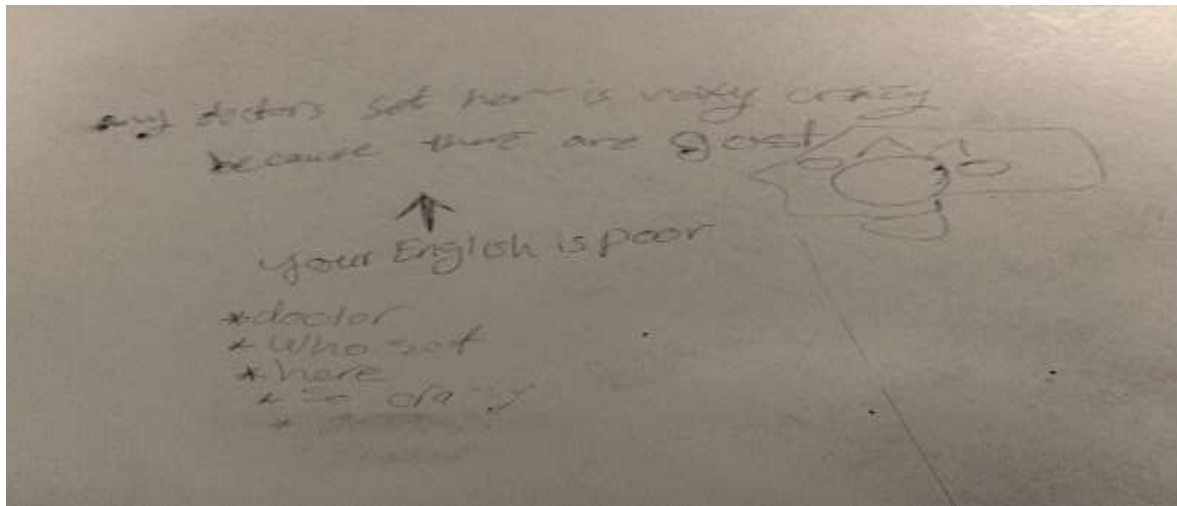 any doctors sat her is vary crazy
because there are gost
your English is poor
*doctor
* Who sat
* here
* so crazy
*